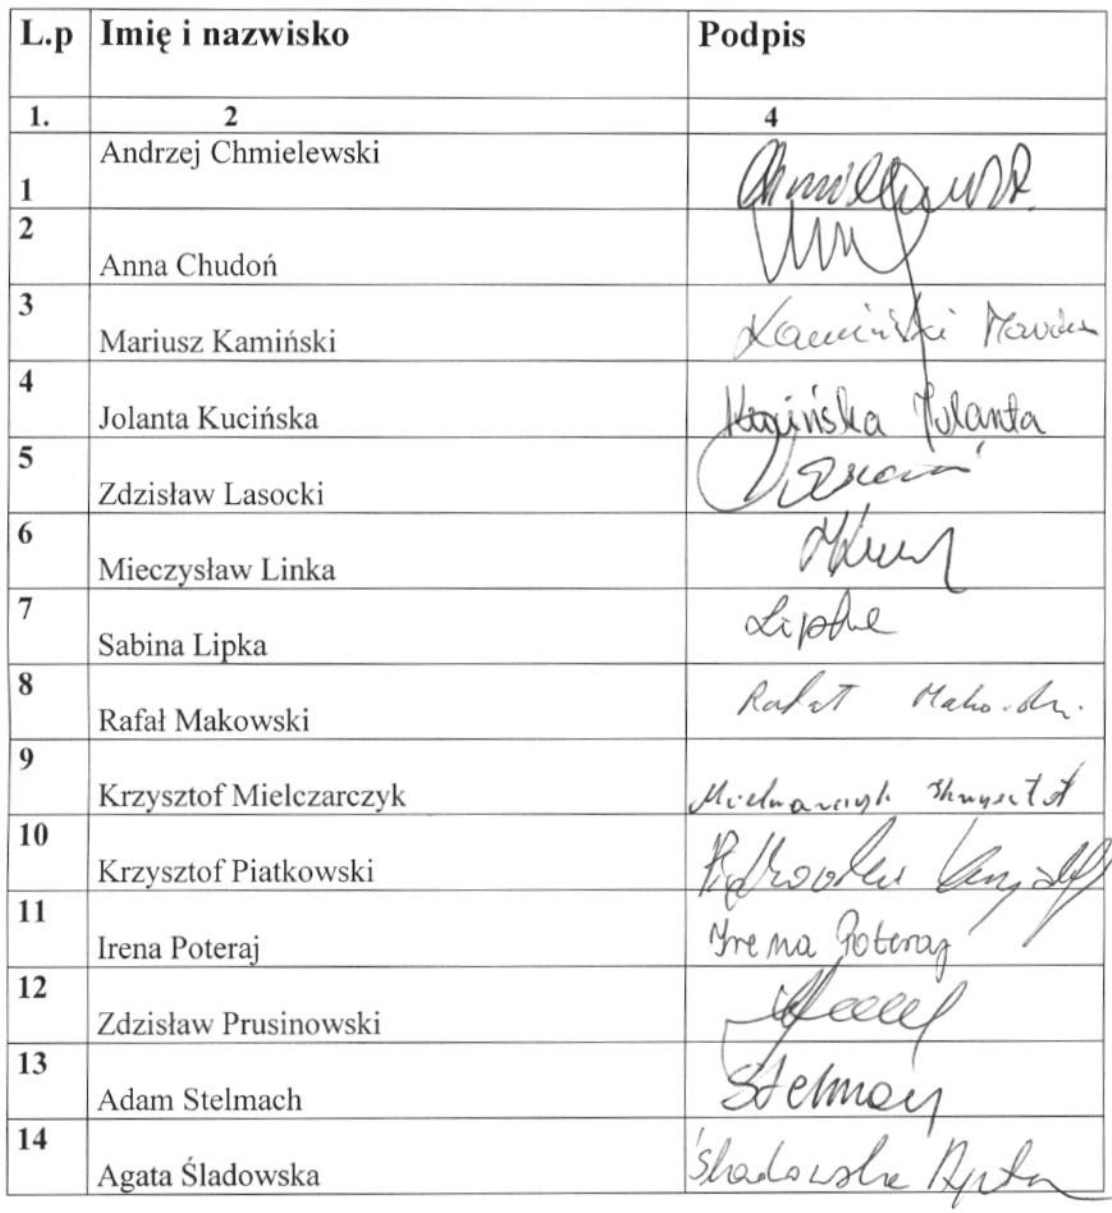 L.p Imię i nazwisko Podpis
1. 2 4
1 Andrzej Chmielewski
2 Anna Chudoń
3 Mariusz Kamiński Kamiński Mariusz
4 Jolanta Kucińska Kucińska Jolanta
5 Zdzisław Lasocki
6 Mieczysław Linka
7 Sabina Lipka Lipka
8 Rafał Makowski Rafał Makowski
9 Krzysztof Mielczarczyk Mielczarczyk Krzysztof
10 Krzysztof Piatkowski
11 Irena Poteraj Irena Poteraj
12 Zdzisław Prusinowski
13 Adam Stelmach Stelmach
14 Agata Śladowska Śladowska Agata